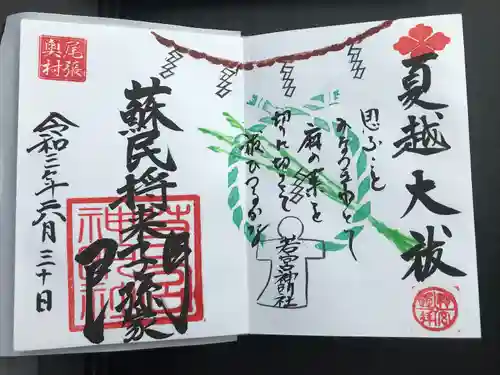 夏越大祓
思ふこと
みなつきねとて
麻の葉を
切りに切りても
祓ひつるかな
若宮神明社
尾張
奥村
蘇民将来子孫家門
令和三年六月三十日